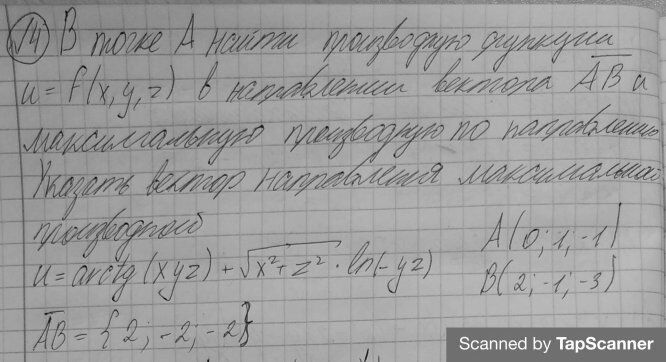 14) В точке А найти производную функции
u = f(x, y, z) в направлении вектора AB и
максимальную производную по направлению
Указать вектор направления максимальной
производной
u = arctg(xyz) + √x²+z² · ln(-yz)
A(0; 1; -1)
B(2; -1; -3)
AB = {2; -2; -2}
Scanned by TapScanner